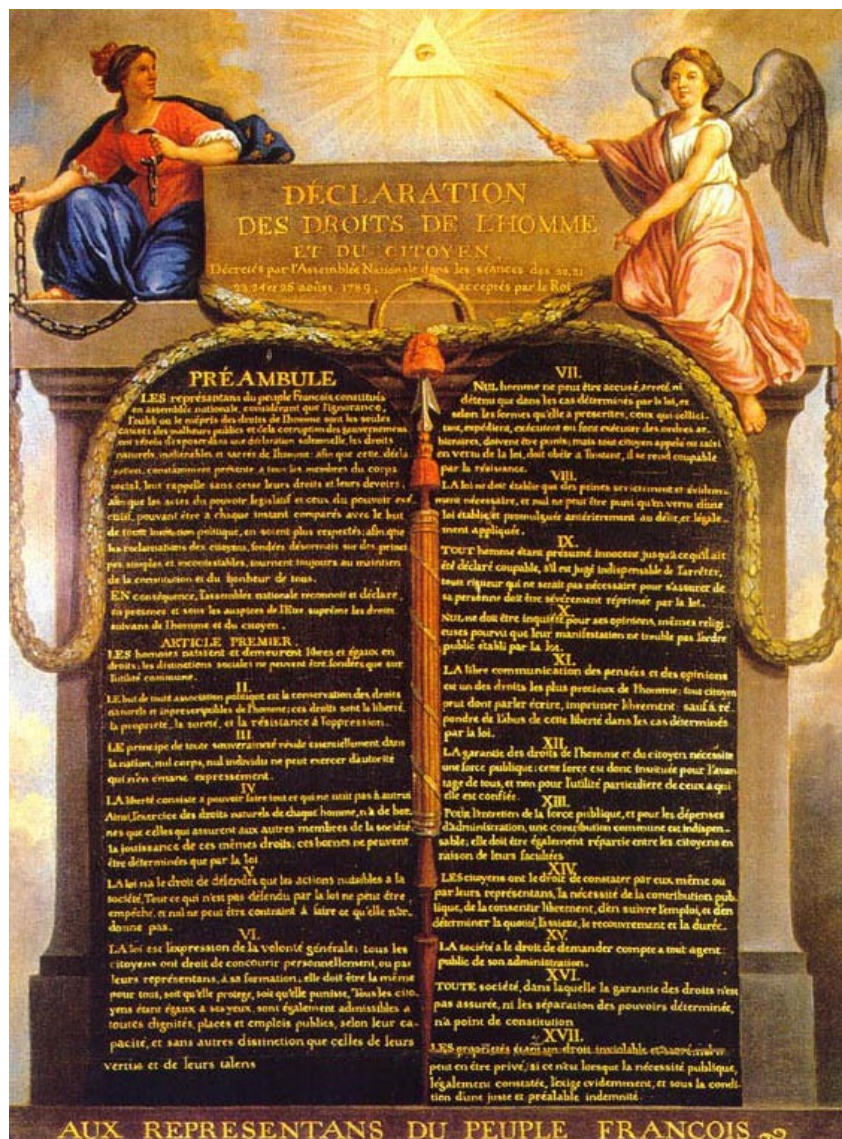 DÉCLARATION
DES DROITS DE L'HOMME
ET DU CITOYEN,
Décretés par l'Assemblée Nationale dans les séances des 20, 21
23, 24 et 26 aoûst 1789, acceptés par le Roi
PRÉAMBULE
LES représentans du peuple François constitués
en assemblée nationale, considérant que l'ignorance,
l'oubli ou le mépris des droits de l'homme sont les seules
causes des malheurs publics et de la corruption des gouvernemens
ont résolu d'exposer dans une déclaration solemnelle, les droits
naturels, inaliénables et sacrés de l'homme: afin que cette décla
ration, constamment présente a tous les membres du corps
social, leur rappelle sans cesse leurs droits et leurs devoirs,
afin que les actes du pouvoir législatif et ceux du pouvoir exé
cutif, pouvant être a chaque instant comparés avec le but
de toute institution politique, en soient plus respectés; afin que
les réclamations des citoyens, fondées désormais sur des princi
pes simples et incontestables, tournent toujours au maintien
de la constitution et du bonheur de tous.
EN conséquence, l'assemblée nationale reconnoit et déclare,
en présence et sous les auspices de l'Etre suprême les droits
suivans de l'homme et du citoyen.
ARTICLE PREMIER.
LES hommes naissent et demeurent libres et égaux en
droits; les distinctions sociales ne peuvent être fondées que sur
l'utilité commune.
II.
LE but de toute association politique est la conservation des droits
naturels et imprescriptibles de l'homme; ces droits sont la liberté,
la propriété, la sureté, et la résistance à l'oppression.
III
LE principe de toute souveraineté réside essentiellement dans
la nation, nul corps, nul individu ne peut exercer d'autorité
qui n'en émane expressément.
IV
LA liberté consiste a pouvoir faire tout ce qui ne nuit pas à autrui
Ainsi, l'exercice des droits naturels de chaque homme, n'a de bor
nes que celles qui assurent aux autres membres de la société
la jouissance de ces mêmes droits, ces bornes ne peuvent
être déterminées que par la loi
V
LA loi n'a le droit de défendre que les actions nuisibles a la
société. Tout ce qui n'est pas défendu par la loi ne peut être
empêché, et nul ne peut être contraint à faire ce qu'elle n'or-
donne pas.
VI.
LA loi est l'expression de la volonté générale; tous les
citoyens ont droit de concourir personnellement, ou par
leurs représentans, à sa formation; elle doit être la même
pour tous, soit qu'elle protege, soit qu'elle punisse, Tous les cito-
yens étant égaux à ses yeux, sont également admissibles a
toutes dignités, places et emplois publics, selon leur ca-
pacité, et sans autres distinction que celles de leurs
vertus et de leurs talens
VII.
NUL homme ne peut être accusé, arreté, ni
détenu que dans les cas déterminés par la loi, et
selon les formes qu'elle a prescrites, ceux qui sollici-
tent, expédient, exécutent ou font exécuter des ordres ar-
bitraires, doivent être punis; mais tout citoyen appelé ou saisi
en vertu de la loi, doit obéir a l'instant, il se rend coupable
par la résistance.
VIII.
LA loi ne doit établir que des peines strictement et évidem-
ment nécessaire, et nul ne peut être puni qu'en vertu d'une
loi établie et promulguée antérierement au délit, et légale-
ment appliquée.
IX.
TOUT homme étant présumé innocent jusqu'a ce qu'il ait
été déclaré coupable, s'il est jugé indispensable de l'arrêter,
toute rigueur qui ne serait pas nécessaire pour s'assurer de
sa personne doit être sévèrement réprimée par la loi.
X.
NUL ne doit être inquiété pour ses opinions, mêmes religi-
euses pourvu que leur manifestation ne trouble pas l'ordre
public établi par la loi.
XI.
LA libre communication des pensées et des opinions
est un des droits les plus precieux de l'homme: tout citoyen
peut dont parler écrire, imprimer librement: sauf à ré
pondre de l'abus de cette liberté dans les cas déterminés
par la loi.
XII.
LA garantie des droits de l'homme et du citoyen nécessite
une force publique: cette force est donc instituée pour l'avan-
tage de tous, et non pour l'utilité particuliere de ceux a qui
elle est confiée.
XIII.
Pour l'entretien de la force publique, et pour les dépenses
d'administration, une contribution commune est indispen-
sable; elle doit être également répartie entre les citoyens en
raison de leurs facultées
XIV.
LES citoyens ont le droit de constater par eux même ou
par leurs représentans, la nécessité de la contribution pub-
lique, de la consentir librement, d'en suivre l'emploi, et d'en
déterminer la quotité, l'assiette, le recouvrement et la durée.
XV.
LA société a le droit de demander compte a tout agent
public de son administration.
XVI.
TOUTE société, dans laquelle la garantie des droits n'est
pas assurée, ni les séparation des pouvoirs déterminée,
n'a point de constitution
XVII.
LES proprietés étant un droit inviolable et sacré, nul ne
peut en être privé, si ce n'est lorsque la nécessité publique,
légalement constatée, l'exige evidemment, et sous la condi-
tion d'une juste et préalable indemnité.
AUX REPRESENTANS DU PEUPLE FRANCOIS